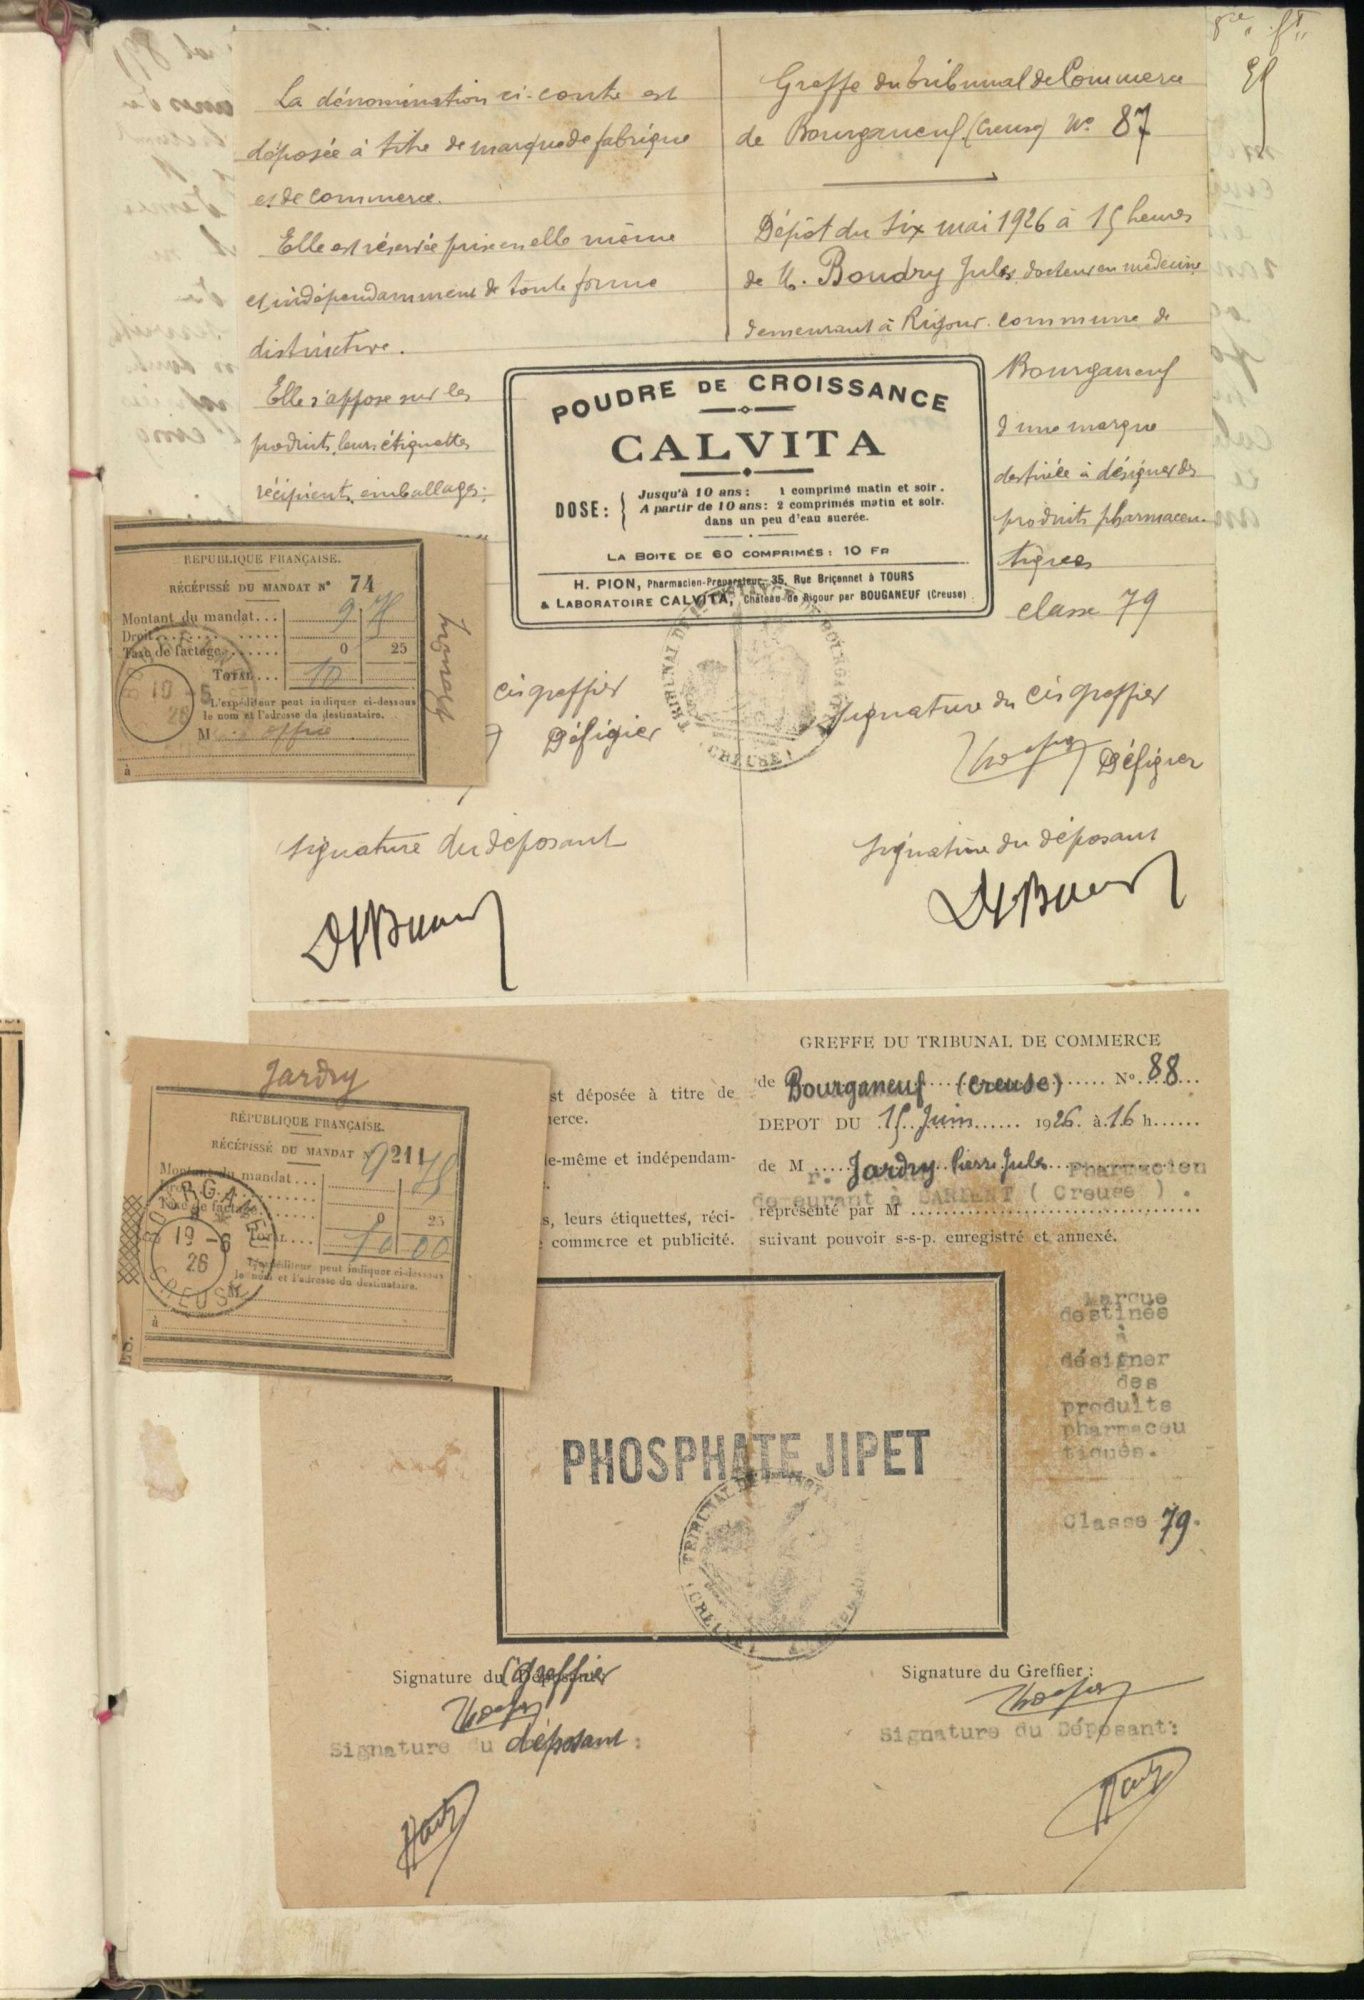 La dénomination ci-contre est
déposée à titre de marque de fabrique
et de commerce.
Elle est réservée prise en elle même
et indépendamment de toute forme
distinctive.
Elle s'appose sur les
produits, leurs étiquettes
récipients, emballages
cis greffier
Défigier
Signature du déposant
Greffe du tribunal de Commerce
de Bourganeuf (Creuse) No 87
Dépôt du six mai 1926 à 15 heures
de M. Boudry Jules, docteur en médecine
demeurant à Rigour commune de
Bourganeuf
d'une marque
destinée à désigner des
produits pharmaceu-
tiques
classe 79
Signature du cis greffier
Défigier
Signature du déposant
POUDRE DE CROISSANCE
CALVITA
DOSE: { Jusqu'à 10 ans: 1 comprimé matin et soir.
A partir de 10 ans: 2 comprimés matin et soir.
dans un peu d'eau sucrée.
LA BOITE DE 60 COMPRIMÉS: 10 FR
H. PION, Pharmacien-Préparateur, 35, Rue Briçonnet à TOURS
& LABORATOIRE CALVITA, Château de Rigour par BOUGANEUF (Creuse)
TRIBUNAL DE BOURGANEUF
(CREUSE)
RÉPUBLIQUE FRANÇAISE.
RÉCÉPISSÉ DU MANDAT N° 74
Montant du mandat... 9 75
Droit
Taxe de factage 0 25
TOTAL... 10
L'expéditeur peut indiquer ci-dessous
le nom et l'adresse du destinataire.
M
à
19 -5
26
Jardry
RÉPUBLIQUE FRANÇAISE.
RÉCÉPISSÉ DU MANDAT N° 211
Montant du mandat... 9 75
Taxe de factage 0 25
TOTAL... 10 00
L'expéditeur peut indiquer ci-dessous
le nom et l'adresse du destinataire.
M
à
BOURGANEUF
19 -6
26
CREUSE
GREFFE DU TRIBUNAL DE COMMERCE
de Bourganeuf (Creuse) N° 88
DEPOT DU 15 Juin 1926. à 16 h
de M Jardry Pierre Jules Pharmacien
demeurant à SARDENT (Creuse).
représenté par M
suivant pouvoir s-s-p. enregistré et annexé.
st déposée à titre de
merce.
le-même et indépendam-
s, leurs étiquettes, réci-
commerce et publicité.
PHOSPHATE JIPET
TRIBUNAL
(CREUSE)
Marque
destinée
à
désigner
des
produits
pharmaceu
tiques.
Classe 79.
Signature du Greffier
Signature du déposant:
Signature du Greffier:
Signature du Déposant: